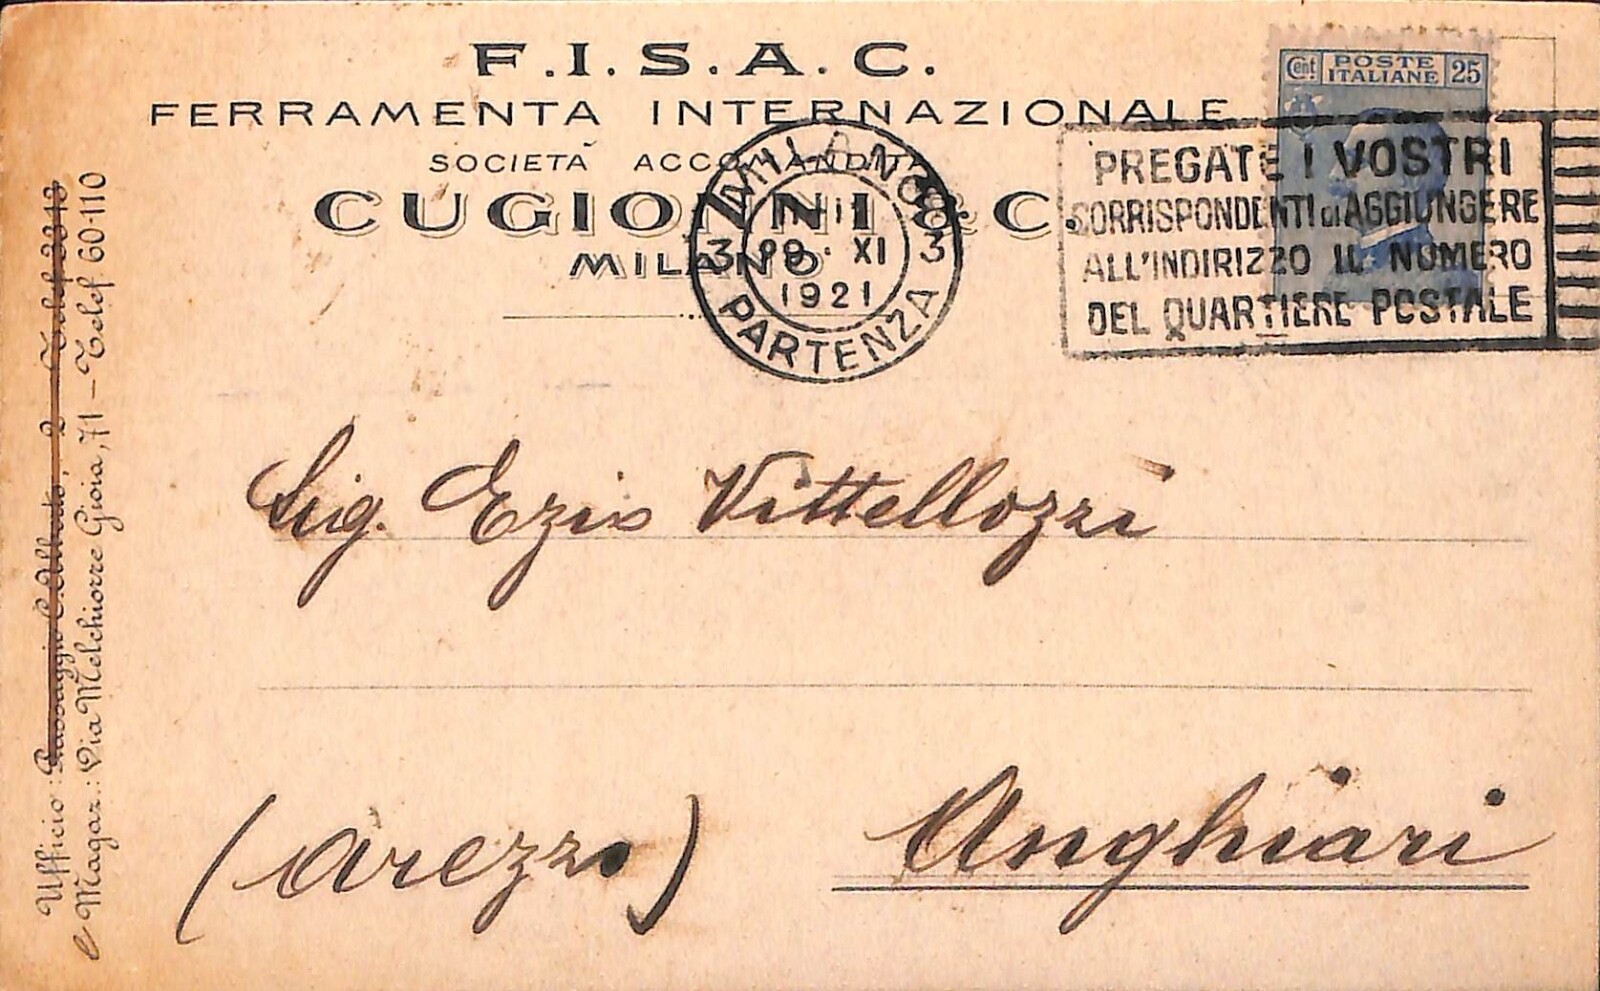 F.I.S.A.C.
FERRAMENTA INTERNAZIONALE
SOCIETÀ ACCOMANDITA
CUGIONNI & C.
MILANO
Cent POSTE ITALIANE 25
MILANO
3 XI 3
1921
PARTENZA
PREGATE I VOSTRI
CORRISPONDENTI DI AGGIUNGERE
ALL'INDIRIZZO IL NUMERO
DEL QUARTIERE POSTALE
Sig. Ezio Vittellozzi
Anghiari
(Arezzo)
Ufficio: Passaggio C. Alberto, 2 - Telef.
e Magaz.: Via Melchiorre Gioia, 71 - Telef. 60-110